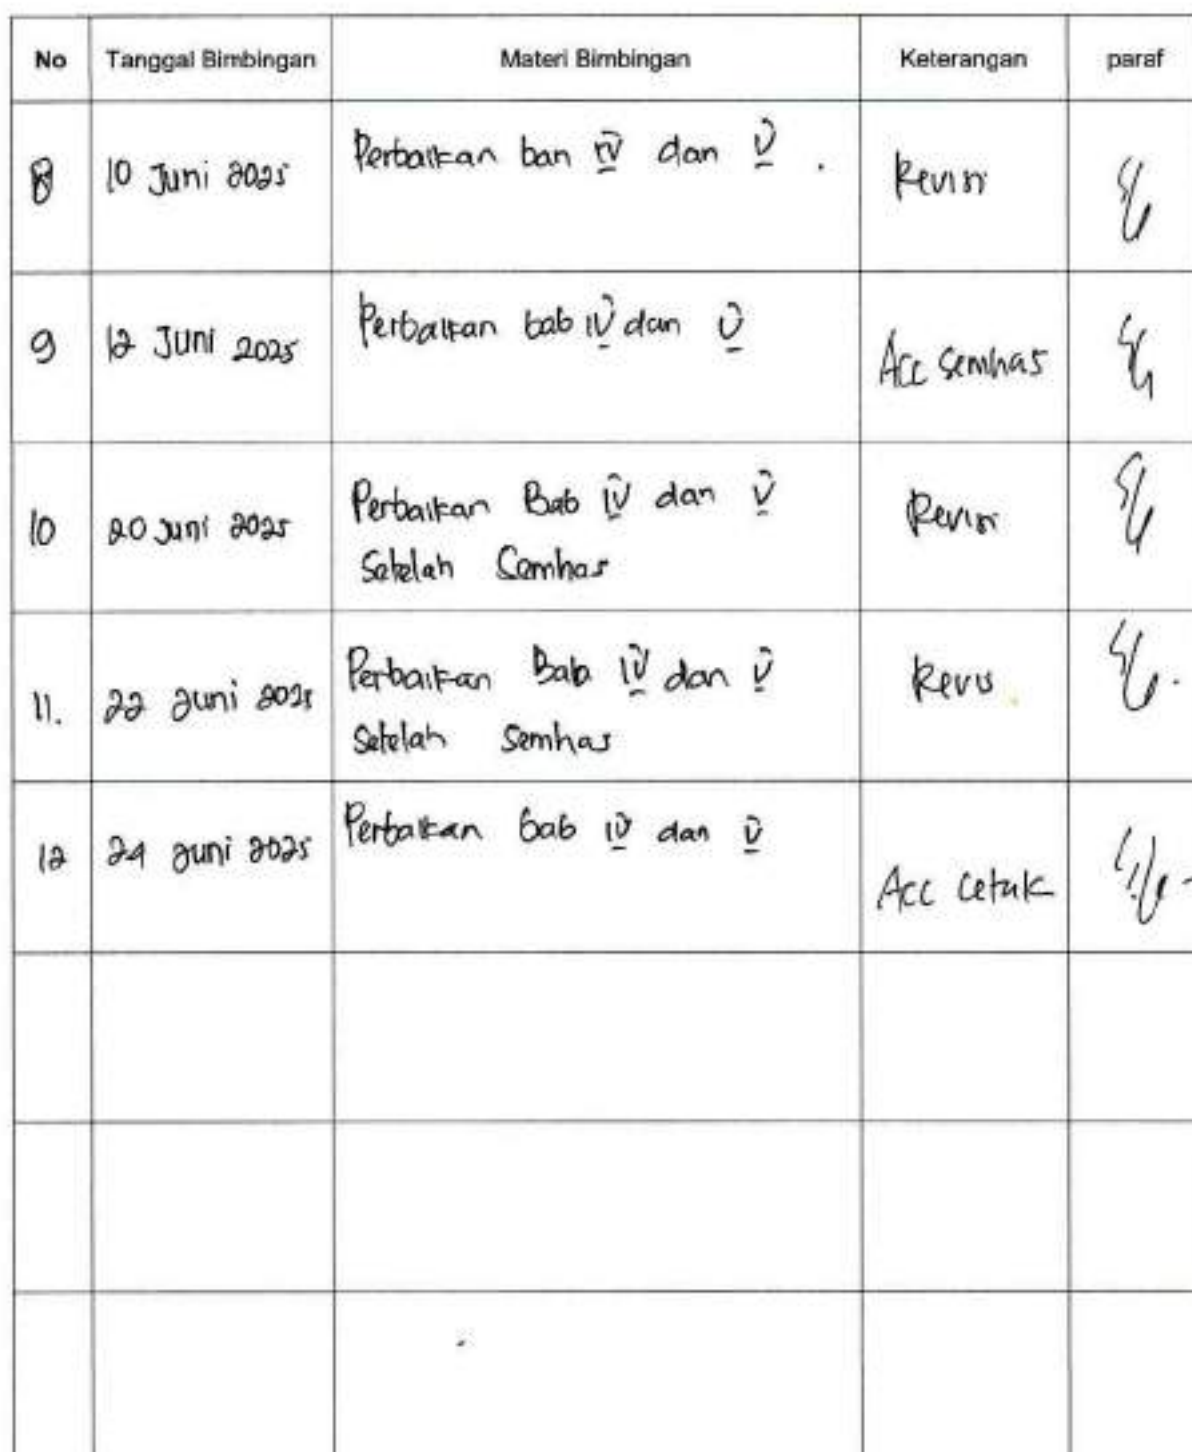 No Tanggal Bimbingan Materi Bimbingan Keterangan paraf
8 10 Juni 2025 Perbaikan ban IV dan V . Revisi
9 12 Juni 2025 Perbaikan bab IV dan V Acc Semhas
10 20 Juni 2025 Perbaikan Bab IV dan V Revisi
Setelah Semhas
11. 22 Juni 2025 Perbaikan Bab IV dan V Revisi
Setelah Semhas
12 24 Juni 2025 Perbaikan bab IV dan V Acc Cetak